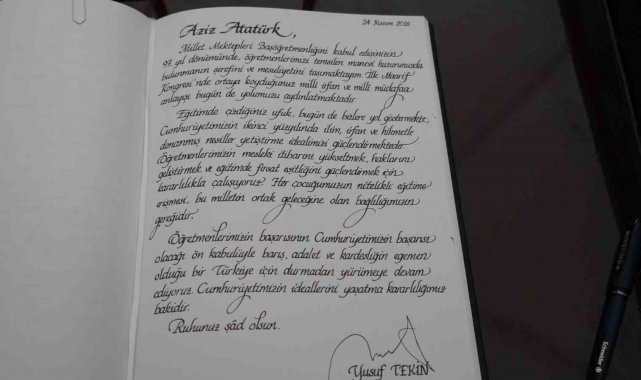 24 Kasım 2025
Aziz Atatürk,
Millet Mektepleri Başöğretmenliğini kabul edişinizin
97. yıl dönümünde, öğretmenlerimizi temsilen manevi huzurunuzda
bulunmanın şerefini ve mesuliyetini taşımaktayım. İlk Maarif
Kongresi'nde ortaya koyduğunuz millî irfan ve millî müdafaa
anlayışı bugün de yolumuzu aydınlatmaktadır.
Eğitimde çizdiğiniz ufuk, bugün de bizlere yol göstermekte,
Cumhuriyetimizin ikinci yüzyılında ilim, irfan ve hikmetle
donanmış nesiller yetiştirme idealimizi güçlendirmektedir.
Öğretmenlerimizin mesleki itibarını yükseltmek, haklarını
geliştirmek ve eğitimde fırsat eşitliğini güçlendirmek için
kararlılıkla çalışıyoruz. Her çocuğumuzun nitelikli eğitime
erişmesi, bu milletin ortak geleceğine olan bağlılığımızın
gereğidir.
Öğretmenlerimizin başarısının Cumhuriyetimizin başarısı
olacağı ön kabulüyle barış, adalet ve kardeşliğin egemen
olduğu bir Türkiye için durmadan yürümeye devam
ediyoruz. Cumhuriyetimizin ideallerini yaşatma kararlılığımız
bakidir.
Ruhunuz şâd olsun.
Yusuf TEKİN
Schneider